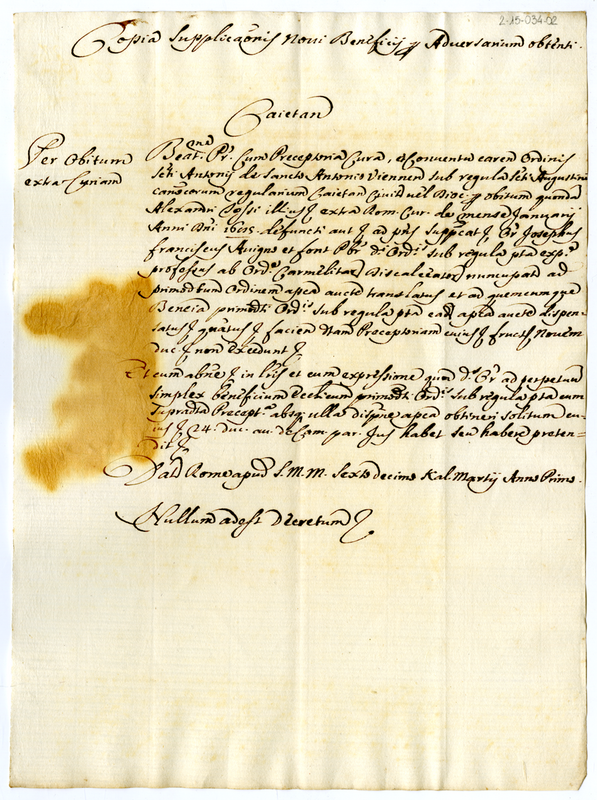 2-15-034-02
Copia Supplicaõnis Noui Beneficij p Adversarium obtenti.
Caietan
Per Obitum
extra Curiam
Beat.me Pr. Cum Preceptoria Cura, et Conventu caren Ordinis
Scti Antonij de Sancto Antonio Viennen sub regula Scti Augustini
canõcorum regularium Caietan Civit vel Dioc. p obitum quondã
Alexandri illius extra Rom. Cur. de mense Januarij
Anni Dni defuncti ad pñs Suppcat Or Josephus
Franciscus Avignone Pbr di Ordis sub regula pta expe
professus ab Orde Carmelitar Discalceator nuncupato ad
primodictum Ordinem apca aucte translatus et ad quemcumque
Beneia primodti Ordis sub regula pta ead apca aucte dispen-
satus facien dtam Preceptoriam cuius fructs Novem
duc non excedunt
Et cum abne in lris et cum expressione quod ds Or ad perpetuu
simplex beneficium Ecclicum primodti Ordis sub regula pta cum
supradta Precepta absq ulla dispne apca obtineri solitum cu-
ius 24. duc. au. de Cam. par. Jus habet seu habere preten-
dit
Dat Rome apud S. M. M. Sexto decimo Kal. Martij Anno Primo.
Nullum adest Decretum